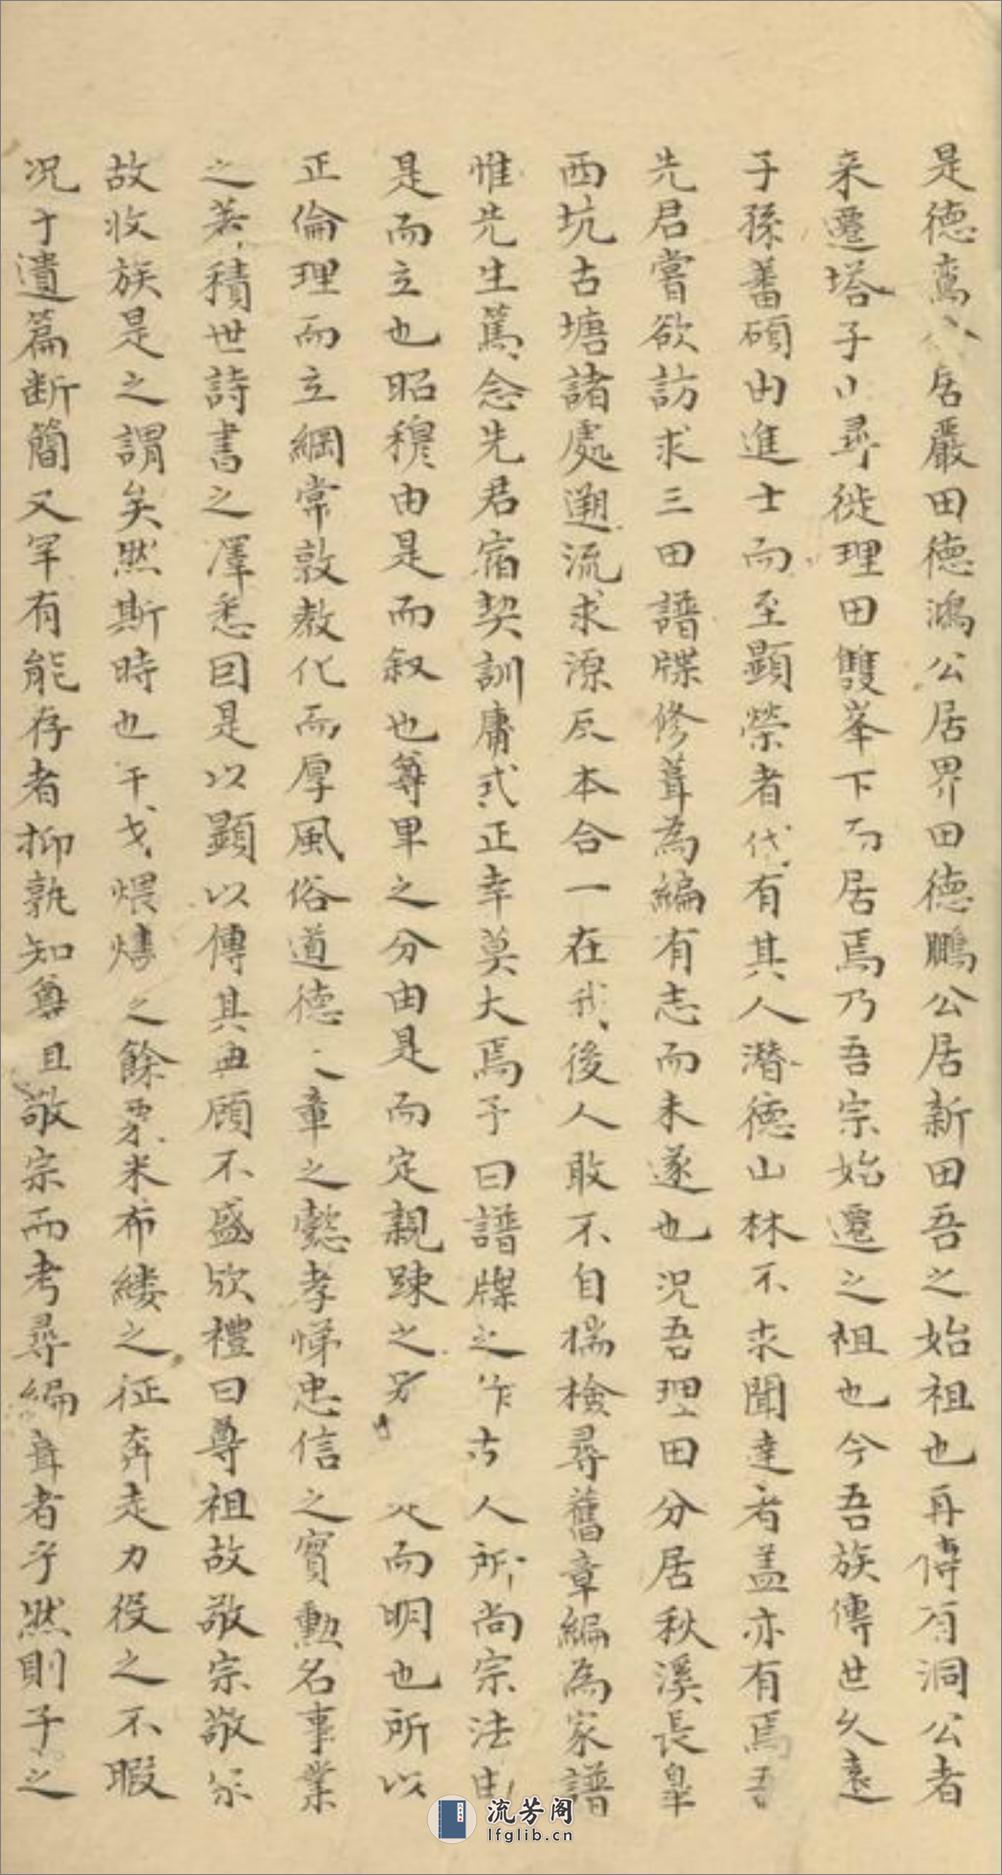 是德鸞公居嚴田德鴻公居界田德鵬公居新田吾之始祖也再傳有洞公者
来遷塔子山尋徙理田雙峯下而居焉乃吾宗始遷之祖也今吾族傳世久遠
子孫蕃碩由進士而至顯榮者代有其人潛德山林不求聞達者盖亦有焉吾
先君嘗欲訪求三田譜牒修葺為編有志而未遂也况吾理田分居秋溪長皐
西坑古塘諸處遡流求源反本合一在我後人敢不自揣檢尋舊章編為家譜
惟先生篤念先君宿契訓庸式正幸莫大焉予曰譜牒之作古人所尚宗法由
是而立也昭穆由是而叙也尊卑之分由是而定親踈之另而明也所以
正倫理而立綱常敦教化而厚風俗道德之章之懿孝悌忠信之實勲名事業
之著積世詩書之澤悉因是以顯以傳其典顧不盛欤禮曰尊祖故敬宗敬宗
故收族是之謂矣然斯時也干戈煨燼之餘粟米布縷之征奔走力役之不暇
况于遺篇断簡又罕有能存者抑孰知尊且敬宗而考尋編葺者乎然則子之
流芳阁
lfglib.cn